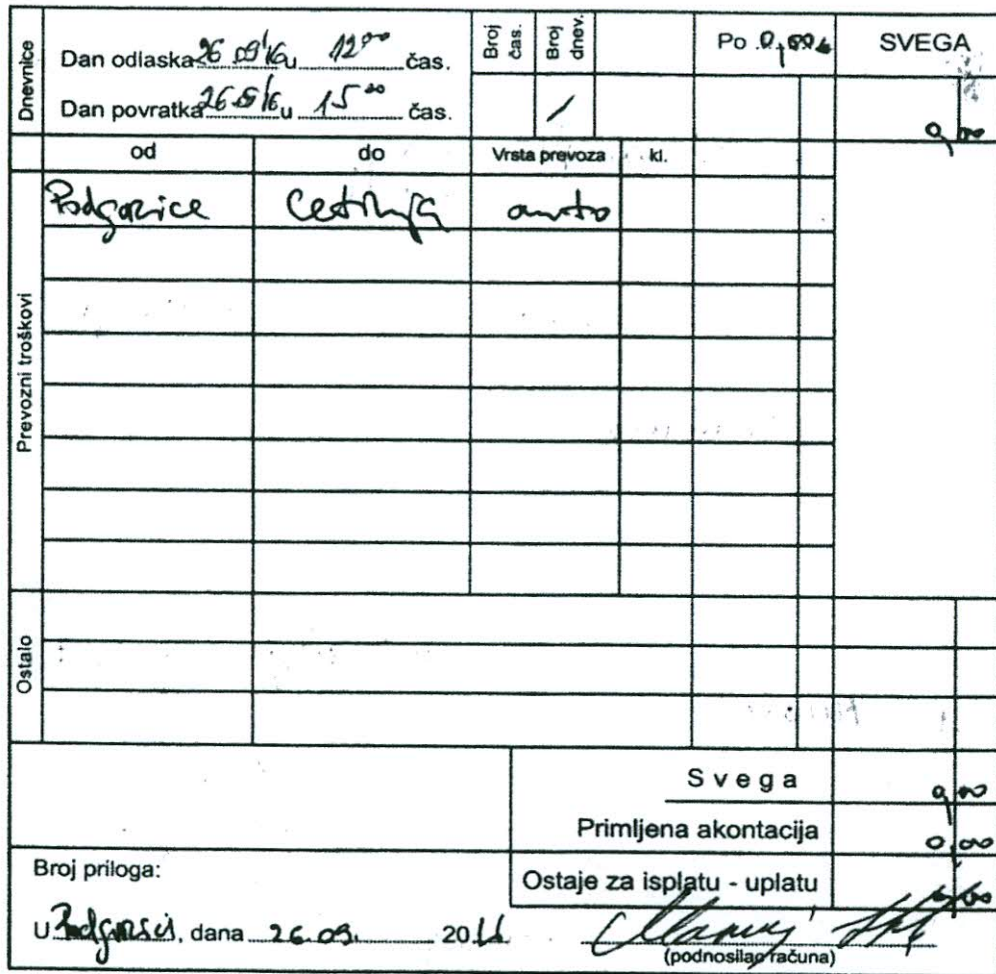 Dnevnice
Dan odlaska 26.09'16 u 12⁰⁰ čas.
Dan povratka 26.09'16 u 15⁰⁰ čas.
Broj čas.
Broj dnev.
/
Po 0,00€
SVEGA
0,00
od do Vrsta prevoza kl.
Prevozni troškovi
Podgorice Cetinja auto
Ostalo
Svega 0,00
Primljena akontacija 0,00
Ostaje za isplatu - uplatu 0,00
Broj priloga:
U Podgorici, dana 26.09. 2016
(podnosilac računa)